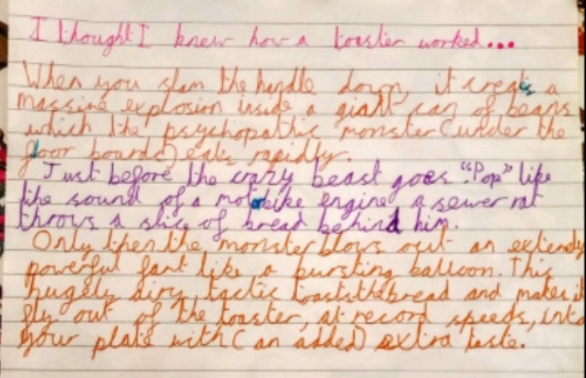 I thought I knew how a toaster worked...
When you slam the handle down, it creates a
massive explosion inside a giant can of beans
which the psychopathic monster (under the
floor boards) eats rapidly.
Just before the crazy beast goes "Pop" like
the sound of a motorbike engine, a sewer rat
throws a slice of bread behind him.
Only then the monster blows out an extends
powerful fart like a bursting balloon. This
hugely airy tactic toasts the bread and makes it
fly out of the toaster, at record speeds, into
your plate with (an added) extra taste.